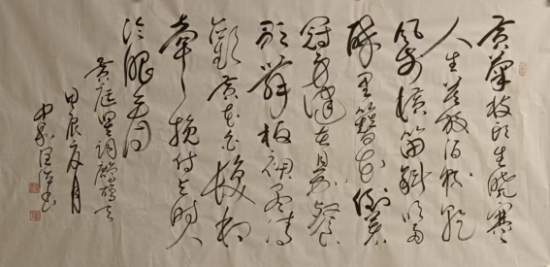 黄菊枝头生晓寒
人生莫放酒杯干
风前横笛斜吹雨
醉里簪花倒着
冠身健在且加餐
歌舞板裙尽清
欢黄花白发相
牵挽付与时人
冷眼看
黄庭坚词鹧鸪天
甲辰年月
书